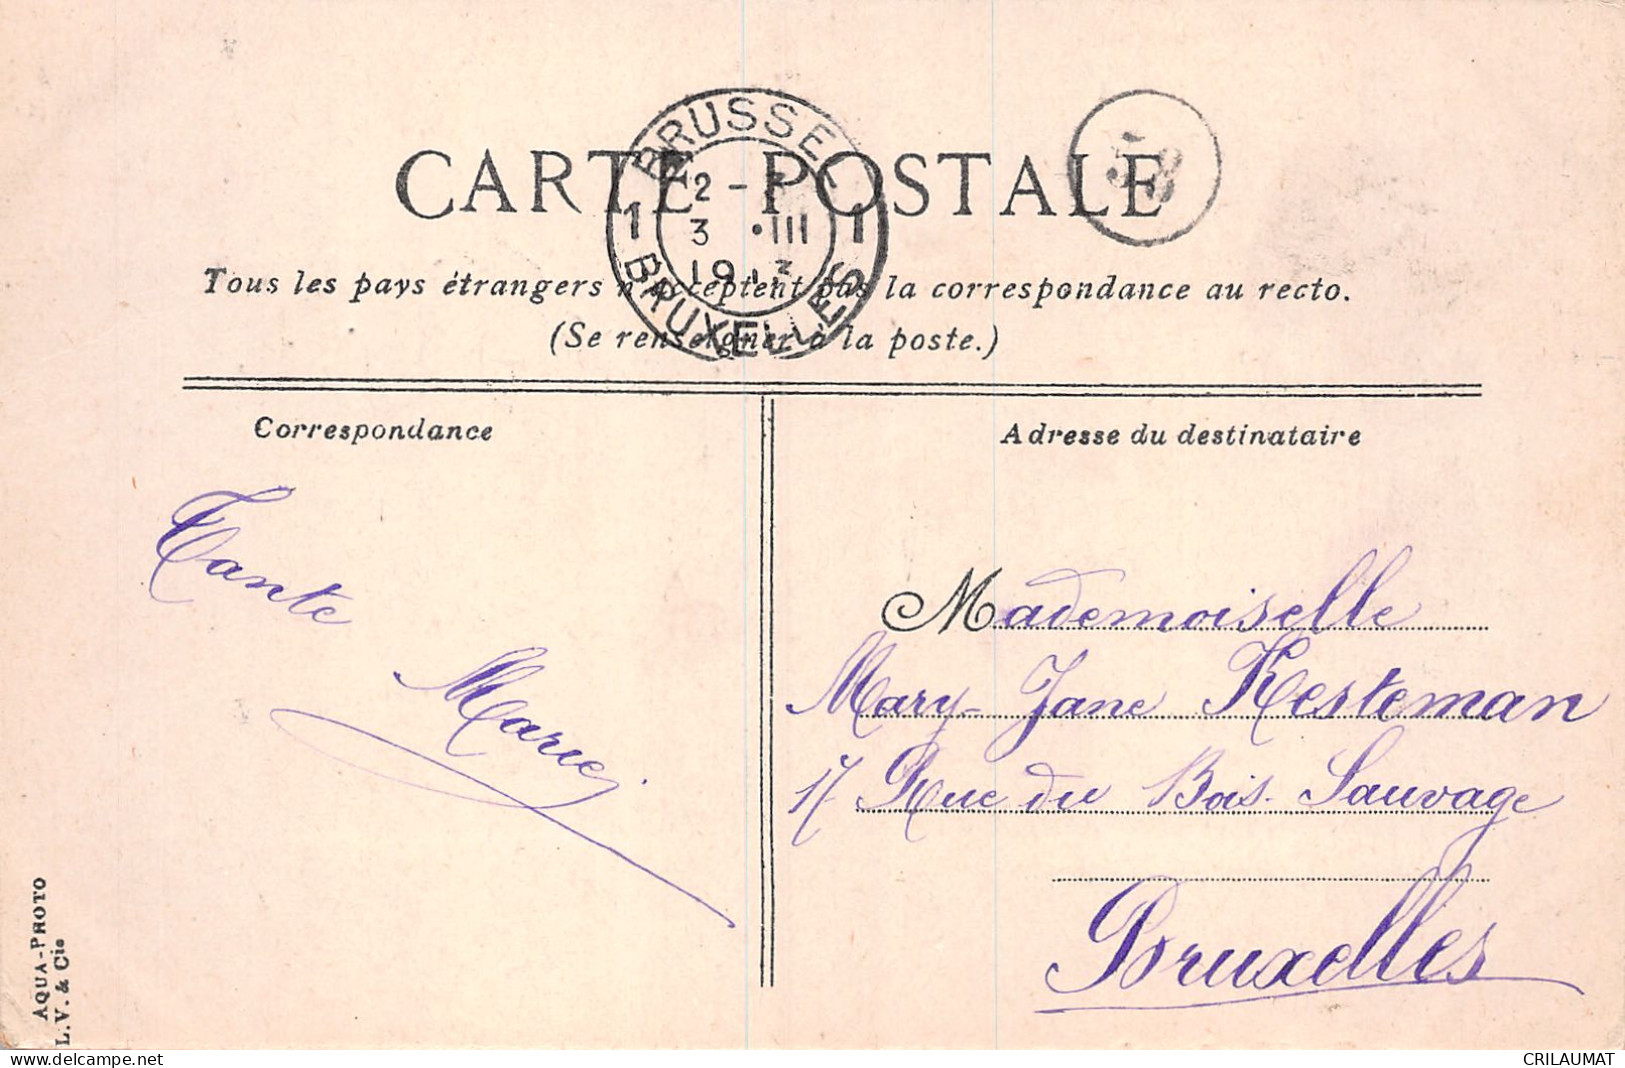 CARTE POSTALE
BRUSSEL
2 -
3 .III
1913
1 1
BRUXELLES
58
Tous les pays étrangers n'acceptent pas la correspondance au recto.
(Se renseigner à la poste.)
Correspondance
Adresse du destinataire
Tante
Marie
Mademoiselle
Mary-Jane Kesteman
17 Rue du Bois-Sauvage
Bruxelles
AQUA-PHOTO
L.V. & Cie
CRILAUMAT
delcampe.net